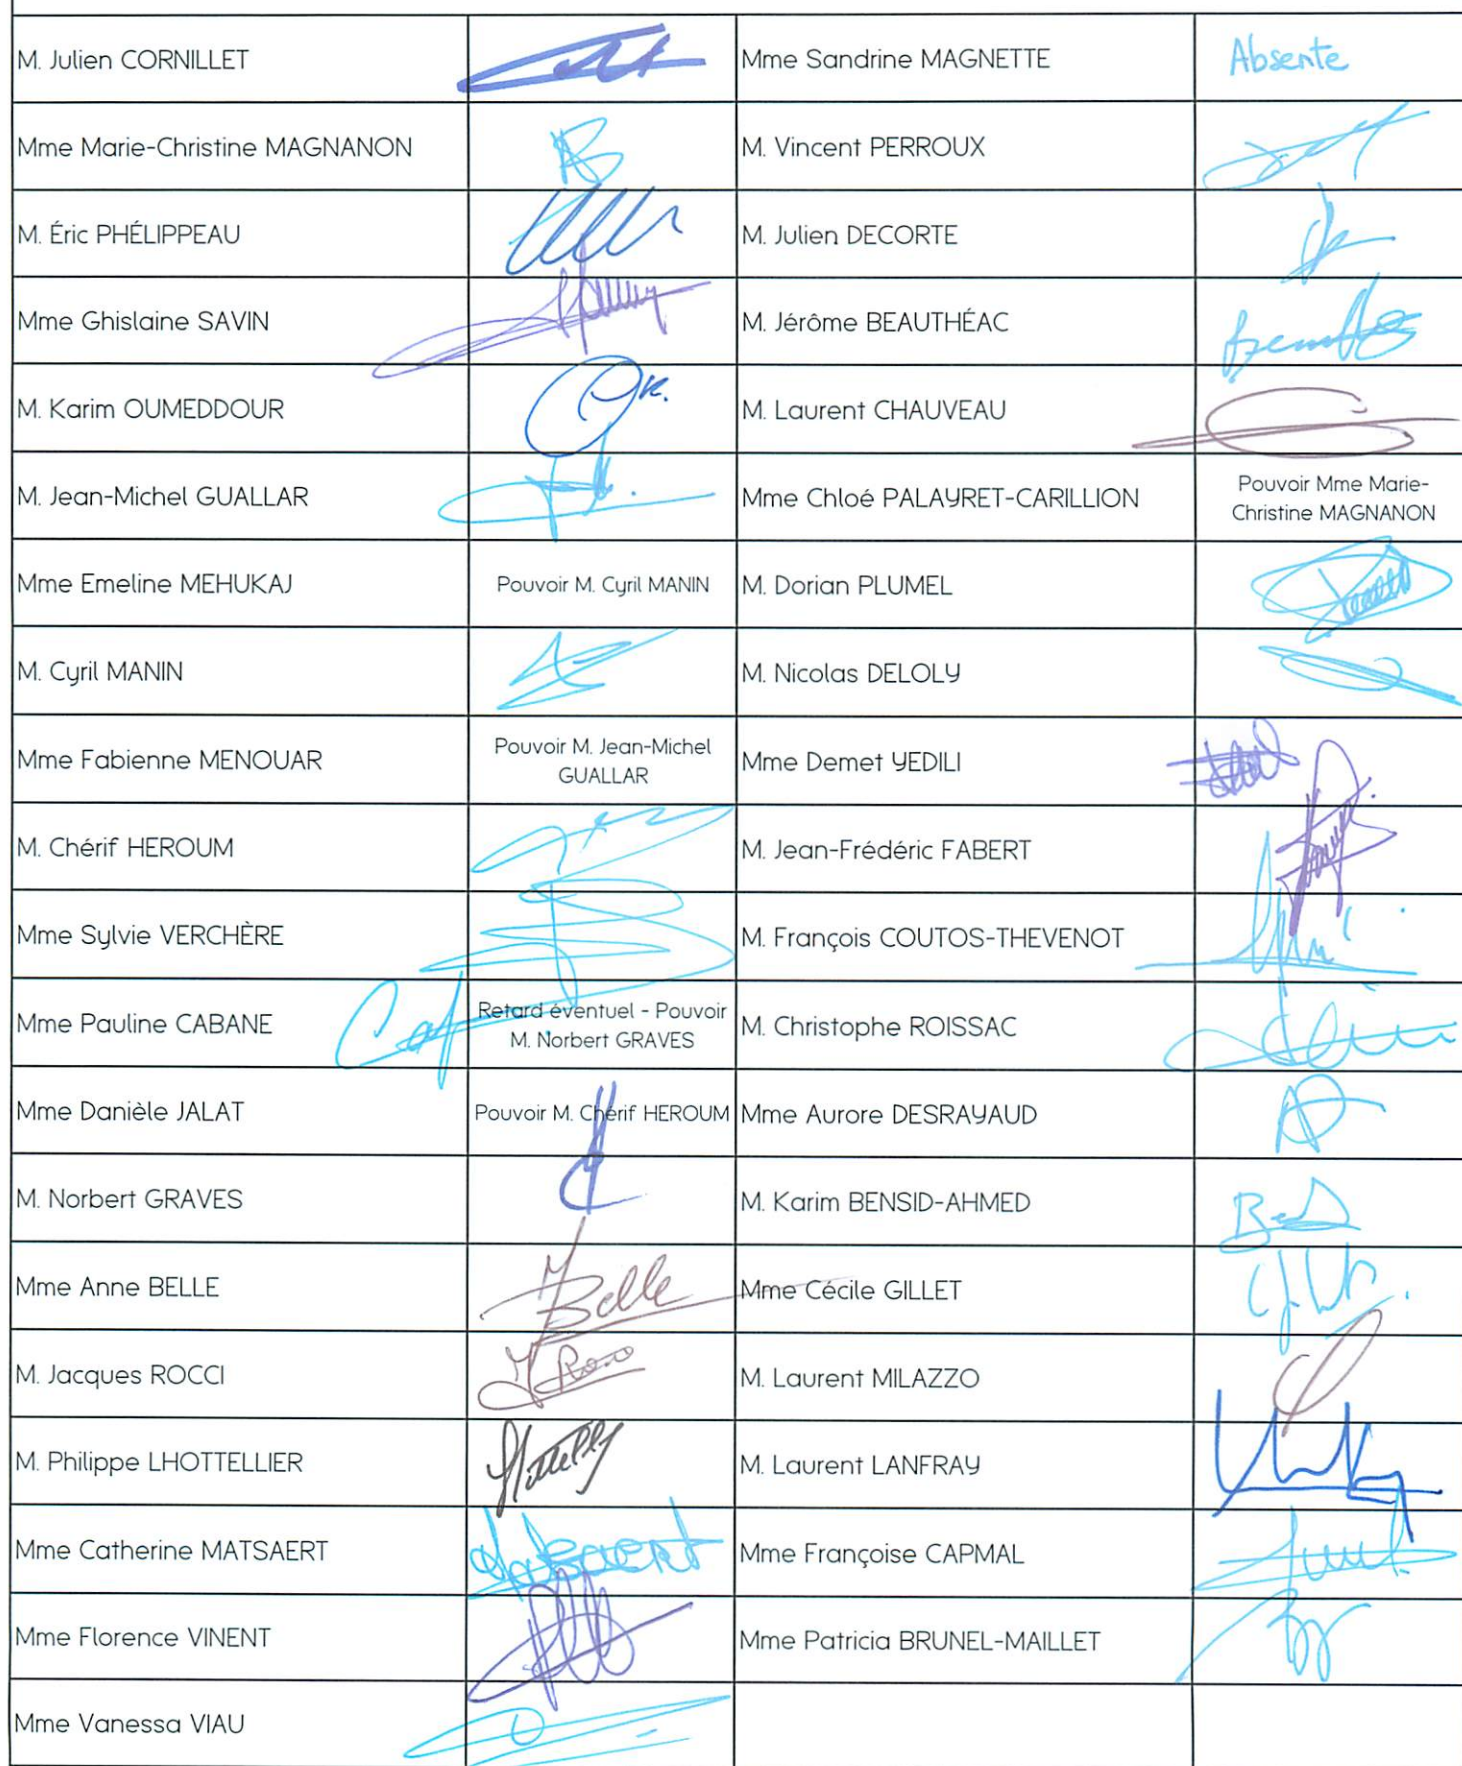 M. Julien CORNILLET
Mme Sandrine MAGNETTE
Absente
Mme Marie-Christine MAGNANON
M. Vincent PERROUX
M. Éric PHÉLIPPEAU
M. Julien DECORTE
Mme Ghislaine SAVIN
M. Jérôme BEAUTHÉAC
M. Karim OUMEDDOUR
M. Laurent CHAUVEAU
M. Jean-Michel GUALLAR
Mme Chloé PALAYRET-CARILLION
Pouvoir Mme Marie-
Christine MAGNANON
Mme Emeline MEHUKAJ
Pouvoir M. Cyril MANIN
M. Dorian PLUMEL
M. Cyril MANIN
M. Nicolas DELOLY
Mme Fabienne MENOUAR
Pouvoir M. Jean-Michel
GUALLAR
Mme Demet YEDILI
M. Chérif HEROUM
M. Jean-Frédéric FABERT
Mme Sylvie VERCHÈRE
M. François COUTOS-THEVENOT
Mme Pauline CABANE
Retard éventuel - Pouvoir
M. Norbert GRAVES
M. Christophe ROISSAC
Mme Danièle JALAT
Pouvoir M. Chérif HEROUM
Mme Aurore DESRAYAUD
M. Norbert GRAVES
M. Karim BENSID-AHMED
Mme Anne BELLE
Belle
Mme Cécile GILLET
M. Jacques ROCCI
M. Laurent MILAZZO
M. Philippe LHOTTELLIER
M. Laurent LANFRAY
Mme Catherine MATSAERT
Mme Françoise CAPMAL
Mme Florence VINENT
Mme Patricia BRUNEL-MAILLET
Mme Vanessa VIAU